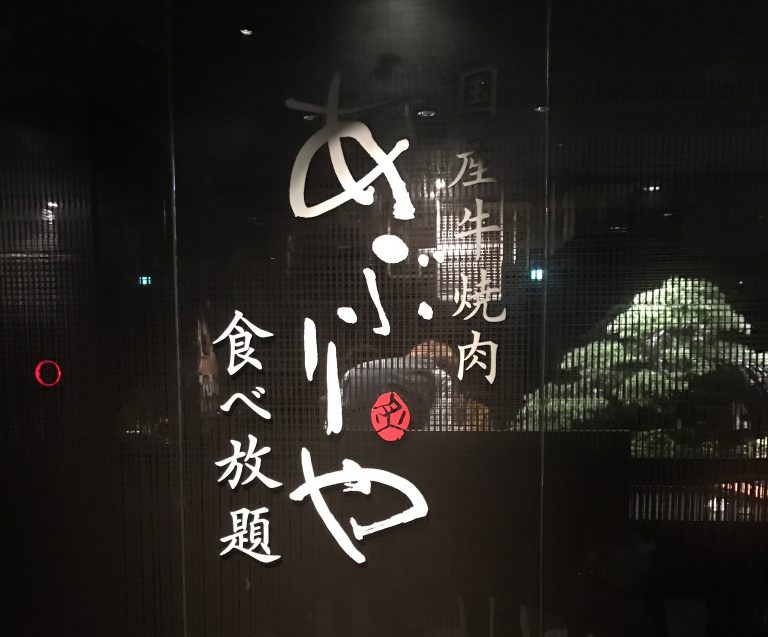 国産牛焼肉
あぶりや
食べ放題